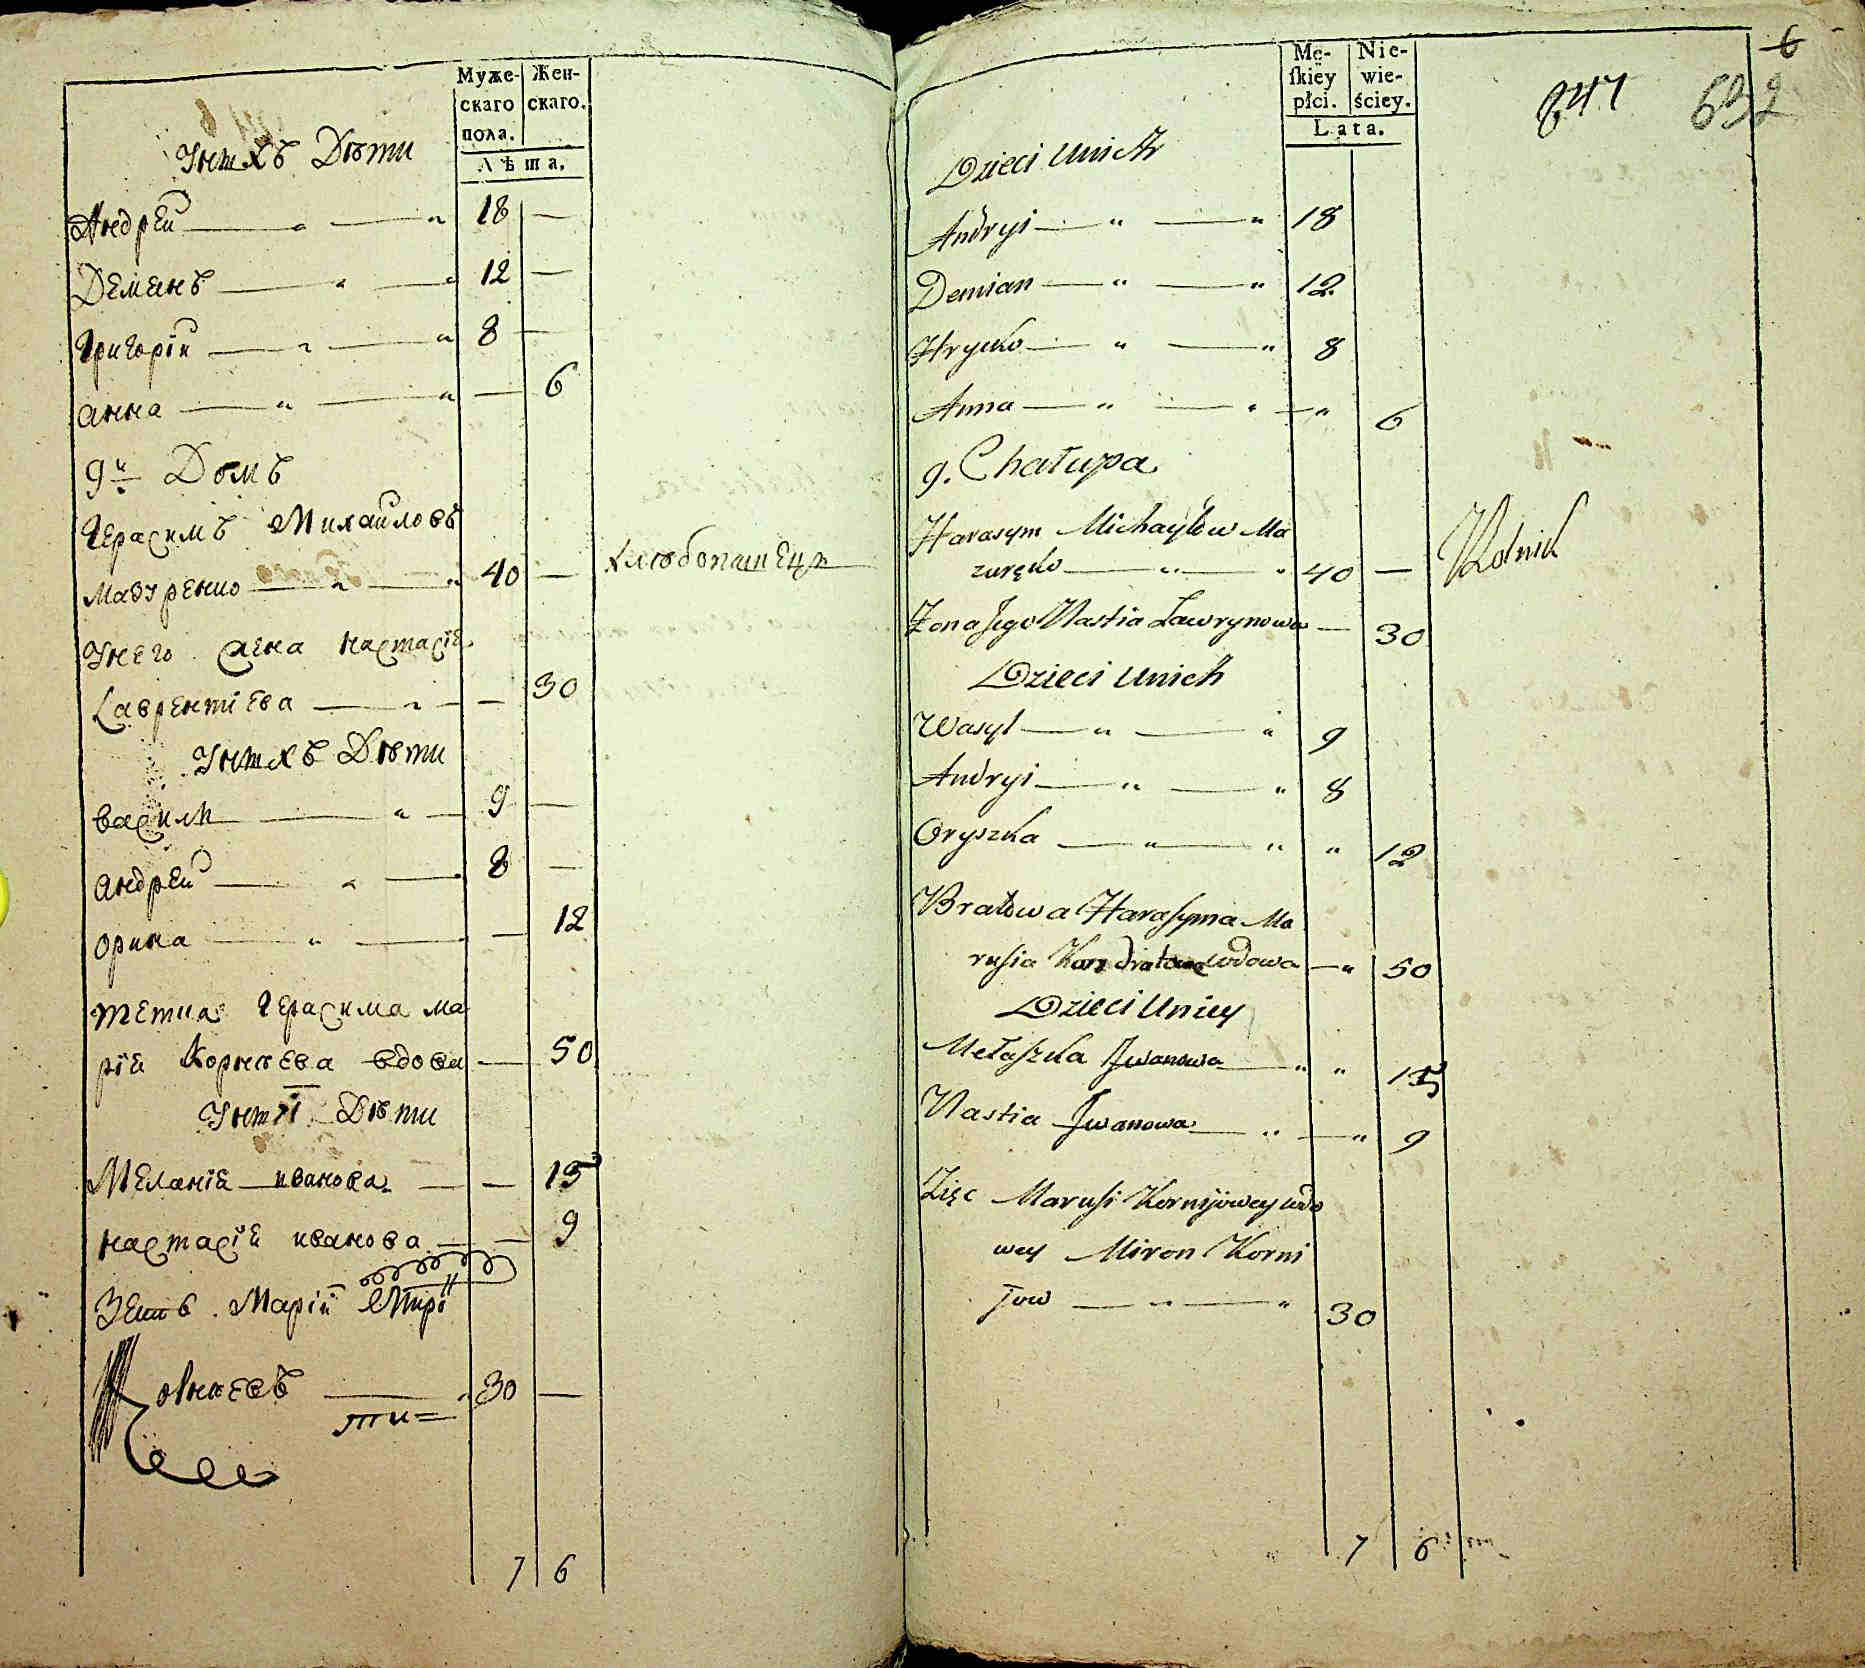 Муже-
скаго
пола.
Жен-
скаго.
Лѣта.
Унихъ Дѣти
Андрей 18 —
Демянъ 12 —
Григорій 8 —
Анна — 6
9й Домъ
Герасимъ Михайловъ
Мазуренко 40 — хлѣбопашецъ
Унего жена Настасія
Лаврентіева — 30
Унихъ Дѣти
Василій 9 —
Андрей 8 —
Орина — 12
тетка Герасима Ма
рія Корнѣева вдова — 50
Дѣти
Меланія иванова — 15
Настасія иванова — 9
Зеть Маріи Миро
Корнѣевъ 30 —
7 6
6
Mę-
skiey
płci.
Nie-
wie-
ściey.
Lata.
841 632
Dzieci Unich
Andryi — " — " 18
Demian — " — " 12
Hrycko — " — " 8
Anna — " — " — " 6
9. Chałupa
Harasym Michayłow Ma
zuręko — " — " 40 — Rolnik
Żona Jego Nastia Ławrynowa — 30
Dzieci Unich
Wasyl — " — " 9
Andryi — " — " 8
Oryszka — " — " " 12
Bratowa Harasyma Ma
rusia wdowa — " 50
Dzieci Uniey
Mełaszka Jwanowa — " " 15
Nastia Jwanowa — " — " 9
Zięc Marusi Kornijowey wdo
wey Miron Korni
jow — " — " 30
7 6